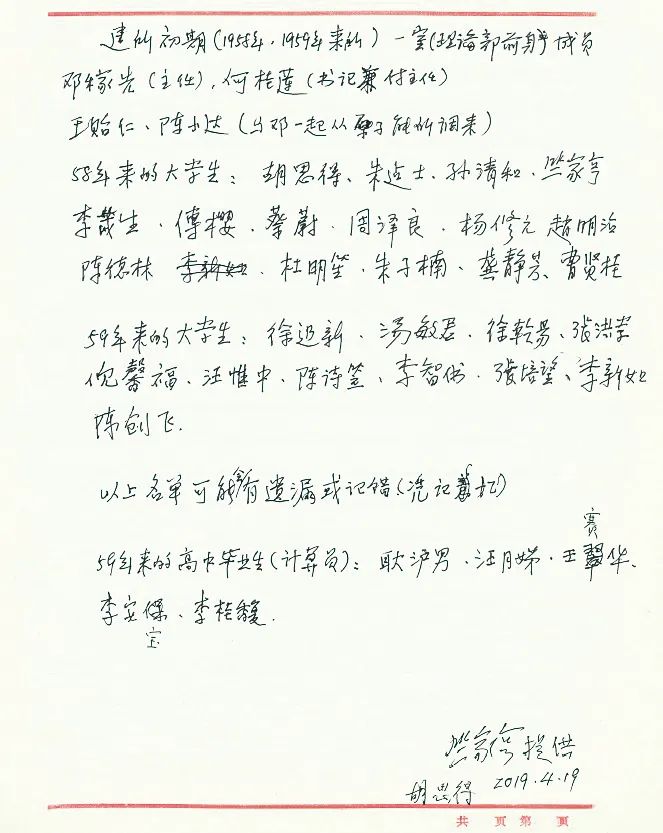 建所初期(1958年，1959年来所) 一室(理论部前身)成员
邓稼先(主任)，何桂莲(书记兼付主任)
王贻仁、陈小达(与邓一起从原子能所调来)
58年来的大学生：胡思得、朱建士、孙清和、竺家亨
李茂生、傅樱、蔡蔚、周泽良、杨修元 趙明治
陈德林 李新如、杜明笙、朱子楠、龚静芳、曹贤桂
59年来的大学生：徐迺新、汤敏君、徐乾易、张洪莹
倪馨福、汪惟中、陈诗笠、李智伟、张培望、李新如
陈创飞.
以上名单可能会有遗漏或记错(凭记忆)
赛
59年来的高中毕业生(计算员)：耿沪男、汪月娣、王翠华、
李宝保、李桂馥.
宝
竺家亨提供
胡思得 2019.4.19
共 页 第 页